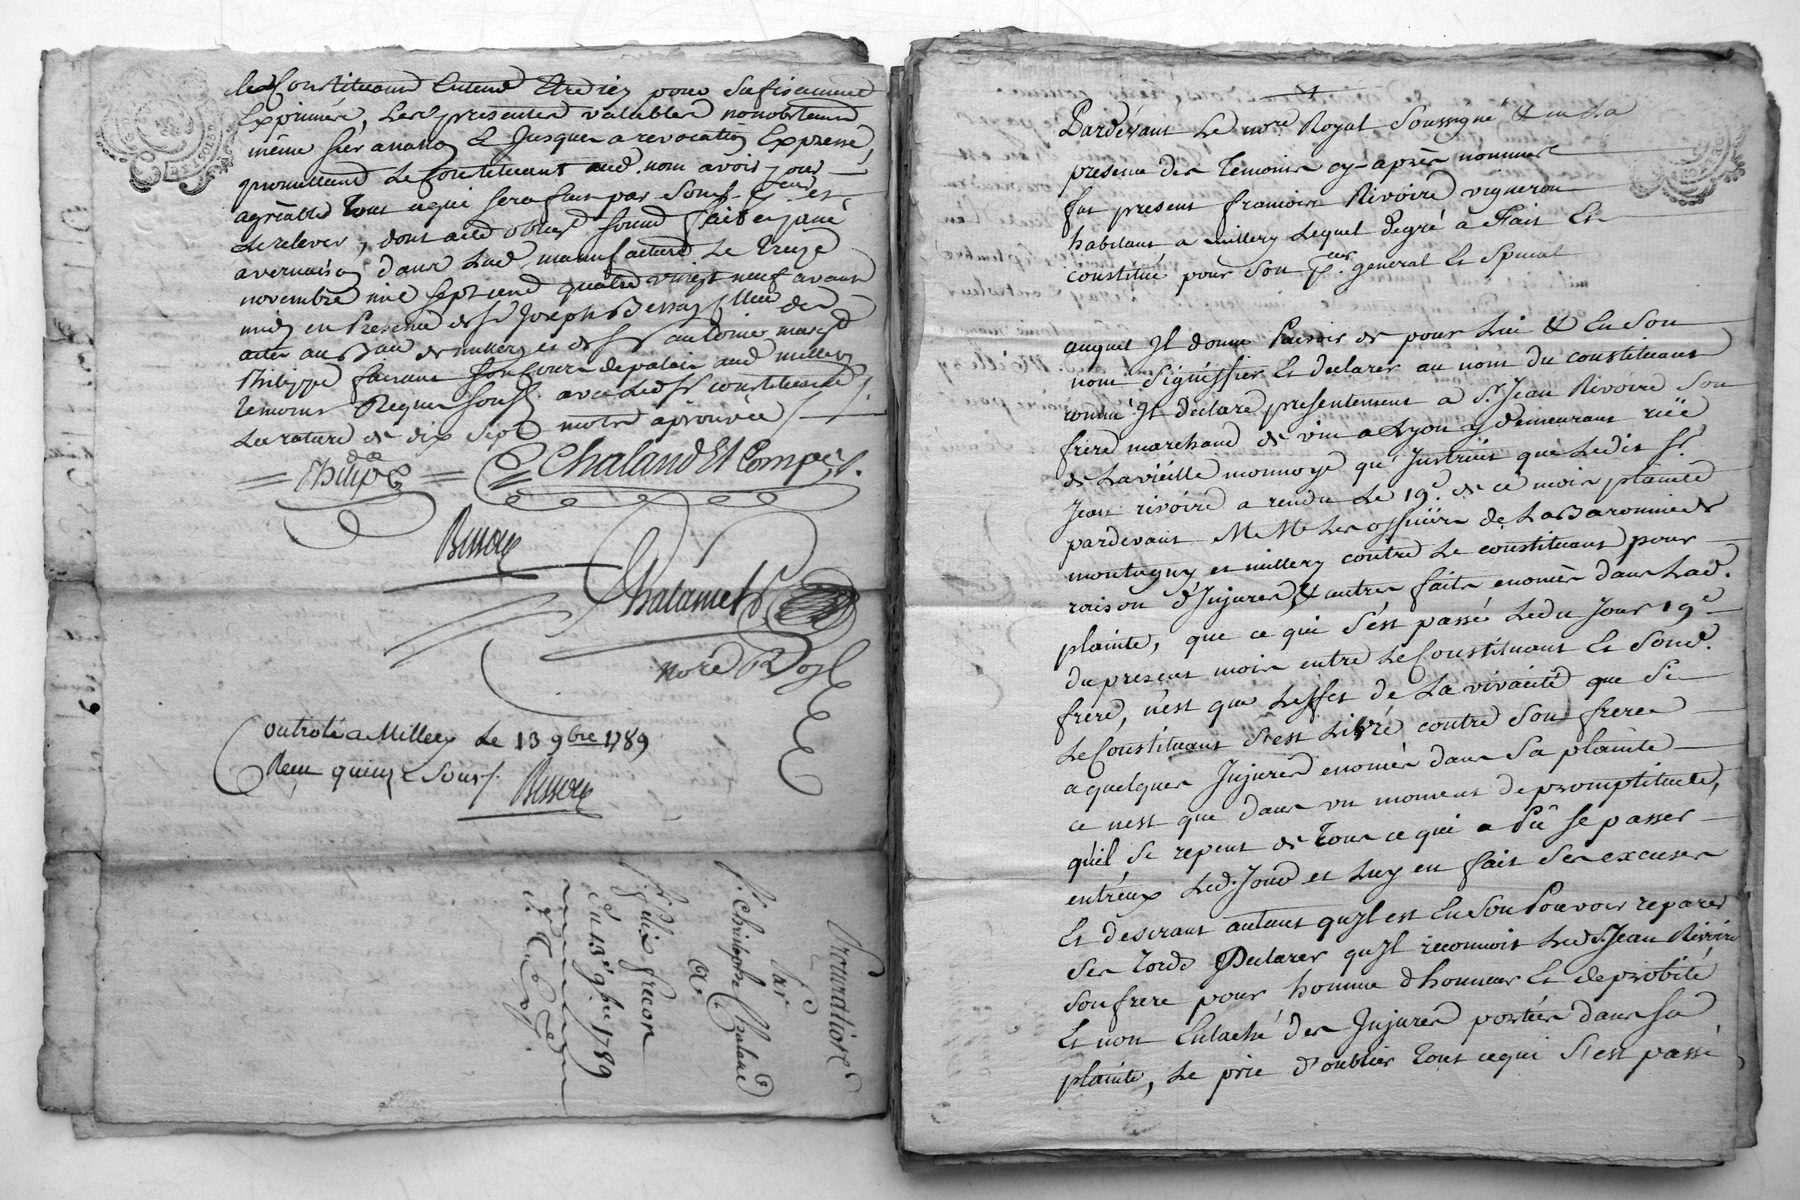 le Constituant Entend Etre icy pour Sufisament
Exprimée, Les presentes valables nonobstant
même sur anna⁠on Et Jusques a revocation Expresse,
promettant Le Constituant aud. nom avoir pour
agréable tout ce qui sera fait par Sond. Pcur et
Le relever, dont acte obligé soumis fait et passé
a vernaison dans Lad. manufacture Le Treize
novembre mil sept cent quatre vingt neuf avant
midy en Presence de Sr Joseph Besson
de millery et de Sr antoine marie
Philippe faisant Son Cours de palais aud. millery
temoins Requis Sousg. avec Led. Sr constituant
La rature de dix Sept mots aprouvée
= Philippe = Chaland Et Compe.
Besson
Chalamel
nore Royl
Controlé a Millery Le 13 9bre 1789
Recu quinze Sous Besson
Procuration
Par
Sr. Christophe Chaland
a
Sr. felix
du 13e 9bre 1789
Pardevant Le nore Royal Soussigné & en La
presence des Temoins cy-après nommés
fut present francois Rivoire vigneron
habitant a millery Lequel degré à Fait Et
constitué pour Son Pcur. general Et Special
auquel Il donne Pouvoir de pour Lui & En Son
nom Signiffier Et declarer au nom du constituant
comme Il declare presentement a Sr. Jean Rivoire Son
frere marchand de vin a Lyon y demeurant rüe
de La vieille monnoye qu'Instruit que Ledit Sr.
Jean rivoire a rendu Le 19e. de ce mois plainte
pardevant MM Les officiers de La Baronnie de
montagny et millery contre Le constituant pour
raison d'Injures & autres faits enoncés dans Lad.
plainte, que ce qui s'est passé Ledit Jour 19e
du present mois entre Le Constituant Et Sond.
frere, n'est que L'effet de La vivacité que Si
Le Constituant S'est Livré contre Son frere
a quelques Injures enoncées dans Sa plainte
ce n'est que dans un moment de promptitude,
qu'il Se repent de tout ce qui a Pû Se passer
entreux Led. Jour et Luy en fait Ses excuses
Et desirant autant qu'Il est En Son Pouvoir reparer
Ses torts Declarer qu'Il reconnoit Led. Sr Jean Rivoire
Son frere pour homme d'honneur Et de probité
Et non Entaché des Injures portées dans Sa
plainte, Le prie d'oublier tout ce qui S'est passé